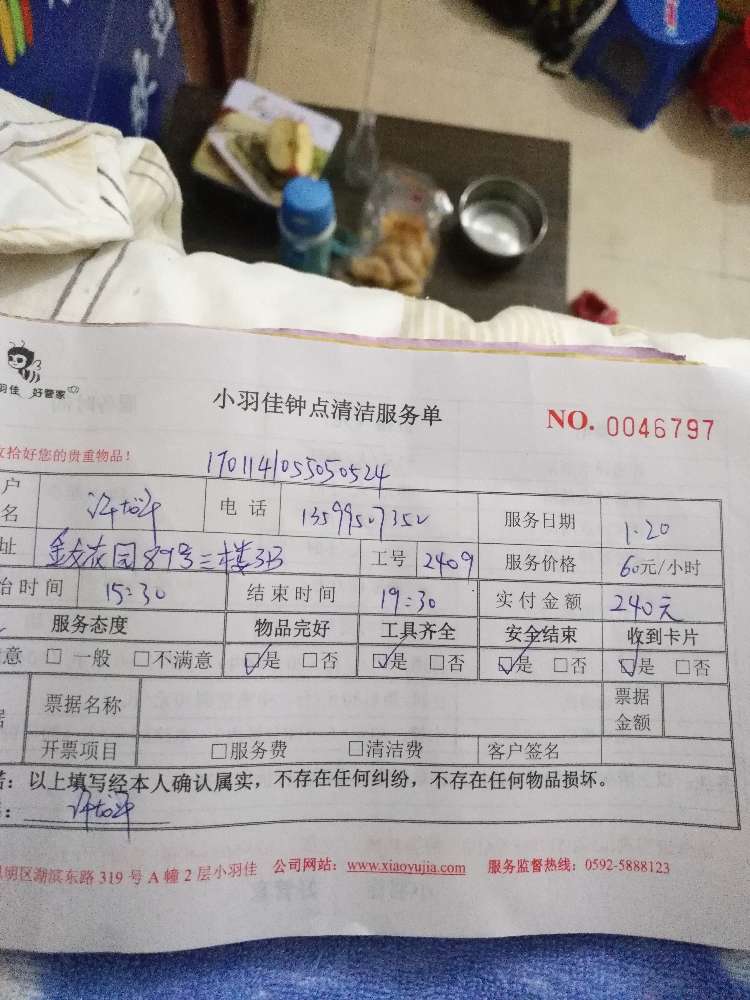 羽佳 好管家
小羽佳钟点清洁服务单
NO. 0046797
收拾好您的贵重物品!
1701141055050524
户名 电话 服务日期 1.20
址 89号三楼3B 工号 2409 服务价格 60元/小时
始时间 15:30 结束时间 19:30 实付金额 240元
服务态度 物品完好 工具齐全 安全结束 收到卡片
意 □一般 □不满意 ☑是 □否 ☑是 □否 ☑是 □否 ☑是 □否
据 票据名称 票据金额
开票项目 □服务费 □清洁费 客户签名
诺:以上填写经本人确认属实,不存在任何纠纷,不存在任何物品损坏。
明区湖滨东路 319 号 A 幢 2 层小羽佳 公司网站:www.xiaoyujia.com 服务监督热线:0592-5888123